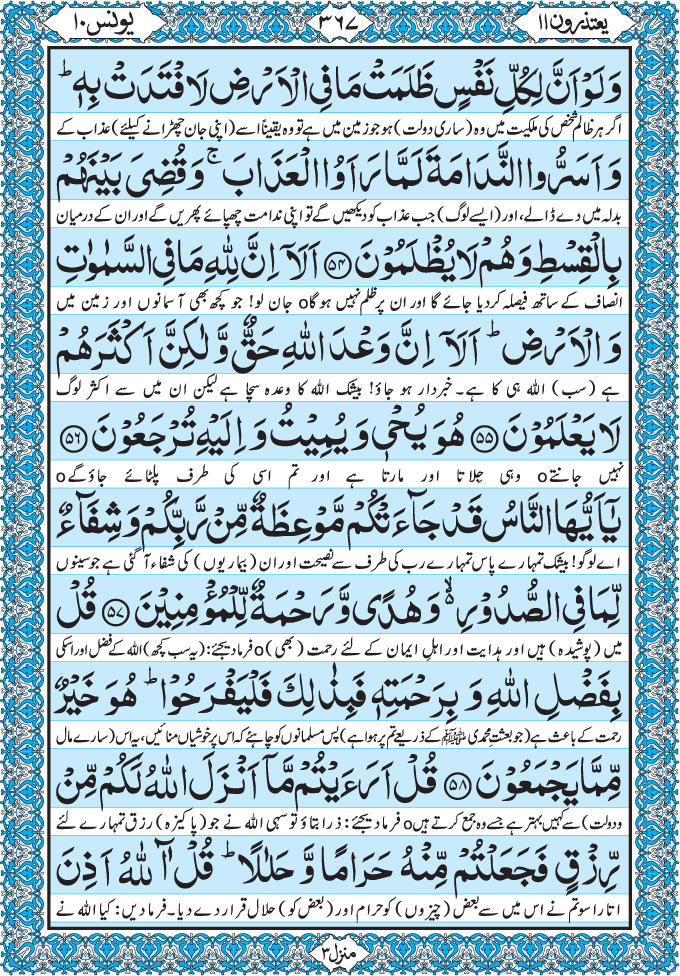 یعتذرون ۱۱
۳۶۷
یونس ۱۰
وَلَوْ اَنَّ لِكُلِّ نَفْسٍ ظَلَمَتْ مَا فِی الْاَرْضِ لَافْتَدَتْ بِهٖ ؕ
اگر ہر ظالم شخص کی ملکیت میں وہ (ساری دولت) ہو جو زمین میں ہے تو وہ یقیناً اسے (اپنی جان چھڑانے کیلئے) عذاب کے
وَاَسَرُّوا النَّدَامَةَ لَمَّا رَاَوُا الْعَذَابَ ۚ وَقُضِیَ بَیْنَهُمْ
بدلہ میں دے ڈالے، اور (ایسے لوگ) جب عذاب کو دیکھیں گے تو اپنی ندامت چھپائے پھریں گے اور ان کے درمیان
بِالْقِسْطِ وَهُمْ لَا یُظْلَمُوْنَ ﴿۵۴﴾ اَلَاۤ اِنَّ لِلّٰهِ مَا فِی السَّمٰوٰتِ
انصاف کے ساتھ فیصلہ کر دیا جائے گا اور ان پر ظلم نہیں ہوگاo جان لو! جو کچھ بھی آسمانوں اور زمین میں
وَالْاَرْضِ ؕ اَلَاۤ اِنَّ وَعْدَ اللّٰهِ حَقٌّ وَّلٰكِنَّ اَكْثَرَهُمْ
ہے (سب) اللہ ہی کا ہے۔ خبردار ہو جاؤ! بیشک اللہ کا وعدہ سچا ہے لیکن ان میں سے اکثر لوگ
لَا یَعْلَمُوْنَ ﴿۵۵﴾ هُوَ یُحْیٖ وَیُمِیْتُ وَاِلَیْهِ تُرْجَعُوْنَ ﴿۵۶﴾
نہیں جانتےo وہی جِلاتا اور مارتا ہے اور تم اسی کی طرف پلٹائے جاؤ گےo
یٰۤاَیُّهَا النَّاسُ قَدْ جَآءَتْكُمْ مَّوْعِظَةٌ مِّنْ رَّبِّكُمْ وَشِفَآءٌ
اے لوگو! بیشک تمہارے پاس تمہارے رب کی طرف سے نصیحت اور ان (بیماریوں) کی شفاء آ گئی ہے جو سینوں
لِّمَا فِی الصُّدُوْرِ ۙ۬ وَهُدًی وَّرَحْمَةٌ لِّلْمُؤْمِنِیْنَ ﴿۵۷﴾ قُلْ
میں (پوشیدہ) ہیں اور ہدایت اور اہلِ ایمان کے لئے رحمت (بھی)o فرما دیجئے: (یہ سب کچھ) اللہ کے فضل اور اسکی
بِفَضْلِ اللّٰهِ وَبِرَحْمَتِهٖ فَبِذٰلِكَ فَلْیَفْرَحُوْا ؕ هُوَ خَیْرٌ
رحمت کے باعث ہے (جو بعثتِ محمدی ﷺ کے ذریعے تم پر ہوا ہے) پس مسلمانوں کو چاہئے کہ اس پر خوشیاں منائیں، یہ اس (سارے مال
مِّمَّا یَجْمَعُوْنَ ﴿۵۸﴾ قُلْ اَرَءَیْتُمْ مَّاۤ اَنْزَلَ اللّٰهُ لَكُمْ مِّنْ
و دولت) سے کہیں بہتر ہے جسے وہ جمع کرتے ہیںo فرما دیجئے: ذرا بتاؤ تو سہی اللہ نے جو (پاکیزہ) رزق تمہارے لئے
رِّزْقٍ فَجَعَلْتُمْ مِّنْهُ حَرَامًا وَّحَلٰلًا ؕ قُلْ آٰللّٰهُ اَذِنَ
اتارا سو تم نے اس میں سے بعض (چیزوں) کو حرام اور (بعض کو) حلال قرار دے دیا۔ فرما دیں: کیا اللہ نے
منزل ۳